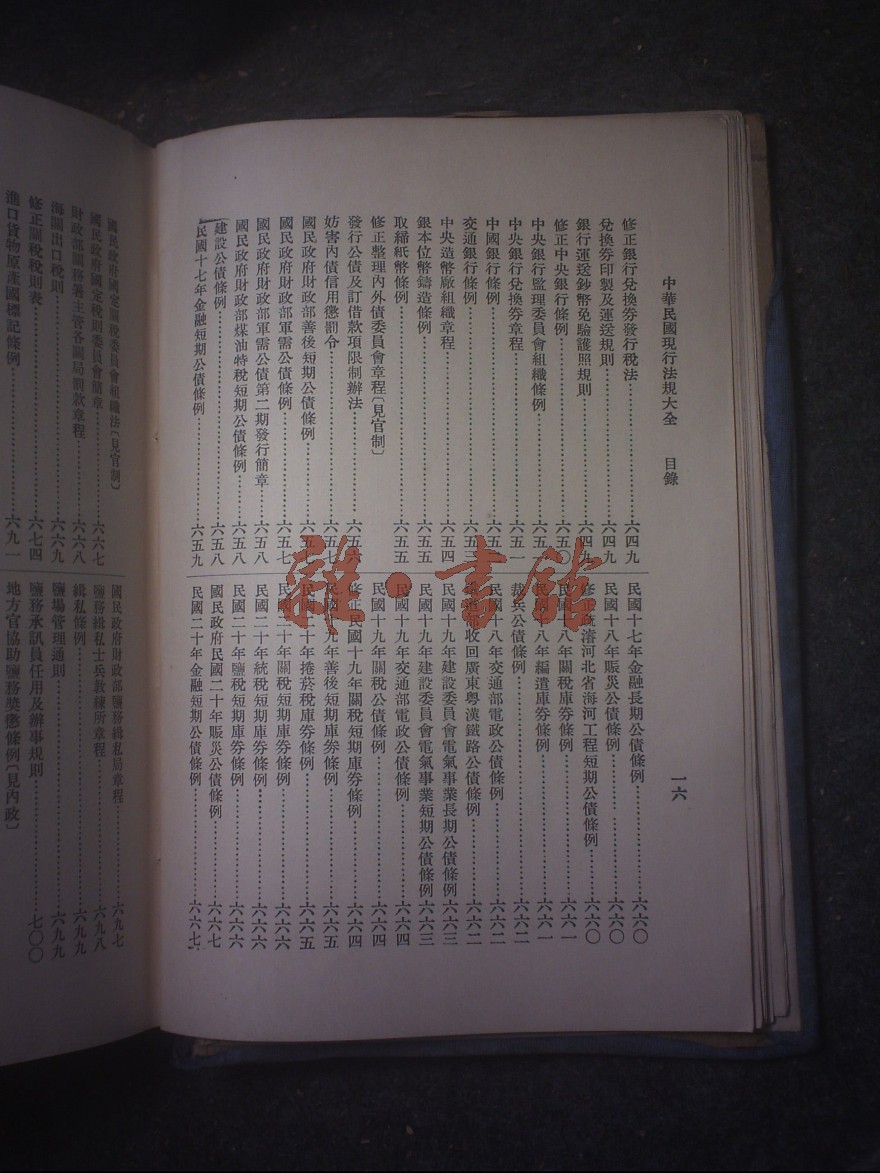 中華民國現行法規大全　目錄
一六
修正銀行兌換券發行稅法……六四九
兌換券印製及運送規則……六四九
銀行運送鈔幣免驗護照規則……六四九
修正中央銀行條例……六五〇
中央銀行監理委員會組織條例……六五一
中央銀行兌換券章程……六五一
中國銀行條例……六五
交通銀行條例……六五三
中央造幣廠組織章程……六五四
銀本位幣鑄造條例……六五五
取締紙幣條例……六五五
修正整理內外債委員會章程〔見官制〕
發行公債及訂借款項限制辦法……六五六
妨害內債信用懲罰令……六五七
國民政府財政部善後短期公債條例……六五七
國民政府財政部軍需公債條例……六五七
國民政府財政部軍需公債第二期發行簡章……六五八
國民政府財政部煤油特稅短期公債條例……六五八
建設公債條例……六五八
民國十七年金融短期公債條例……六五九
民國十七年金融長期公債條例……六六〇
民國十八年賑災公債條例……六六〇
修正疏濬河北省海河工程短期公債條例……六六〇
民國十八年關稅庫券條例……六六一
民國十八年編遣庫券條例……六六一
裁兵公債條例……六六二
民國十八年交通部電政公債條例……六六二
收回廣東粵漢鐵路公債條例……六六二
民國十九年建設委員會電氣事業長期公債條例……六六三
民國十九年建設委員會電氣事業短期公債條例……六六三
民國十九年交通部電政公債條例……六六四
民國十九年關稅公債條例……六六四
修正民國十九年關稅短期庫券條例……六六四
民國十九年善後短期庫券條例……六六五
民國二十年捲菸稅庫券條例……六六五
民國二十年關稅短期庫券條例……六六六
民國二十年統稅短期庫券條例……六六六
民國二十年鹽稅短期庫券條例……六六六
國民政府民國二十年賑災公債條例……六六七
民國二十年金融短期公債條例……六六七
國民政府國定關稅委員會組織法〔見官制〕
國民政府國定稅則委員會簡章……六六七
財政部關務署主管各關局罰款章程……六六八
海關出口稅則……六六九
修正關稅稅則表……六七四
進口貨物原產國標記條例……六九一
國民政府財政部鹽務緝私局章程……六九七
鹽務緝私士兵教練所章程……六九八
緝私條例……六九九
鹽場管理通則……六九九
鹽務承訊員任用及辦事規則……七〇〇
地方官協助鹽務獎懲條例〔見內政〕
雜·書館